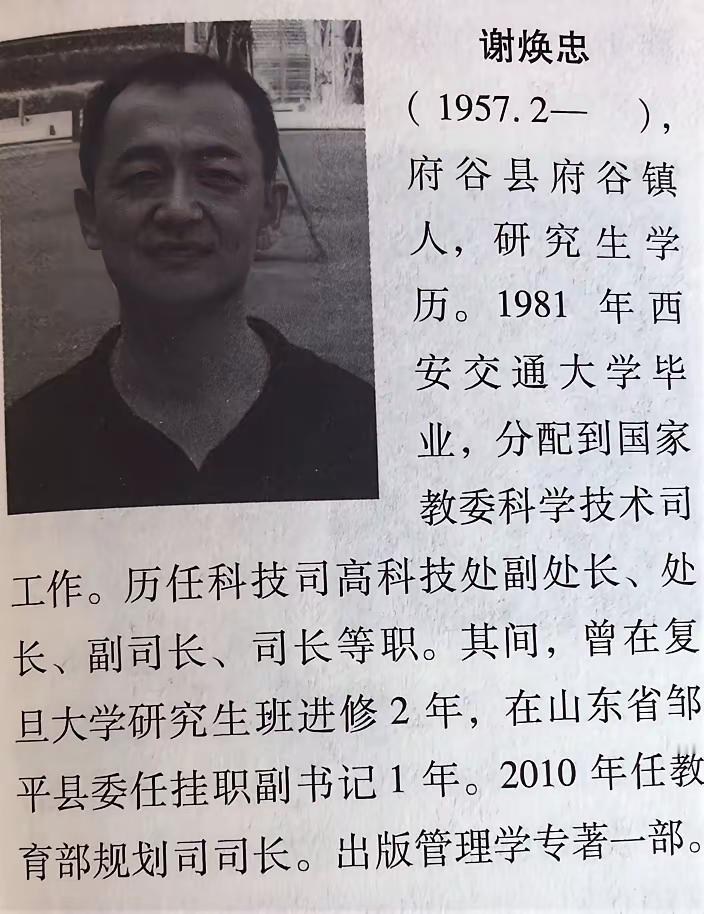 谢焕忠
（1957.2—　），
府谷县府谷镇
人，研究生学
历。1981 年西
安交通大学毕
业，分配到国家
教委科学技术司
工作。历任科技司高科技处副处长、处
长、副司长、司长等职。其间，曾在复
旦大学研究生班进修 2 年，在山东省邹
平县委任挂职副书记 1 年。2010 年任教
育部规划司司长。出版管理学专著一部。